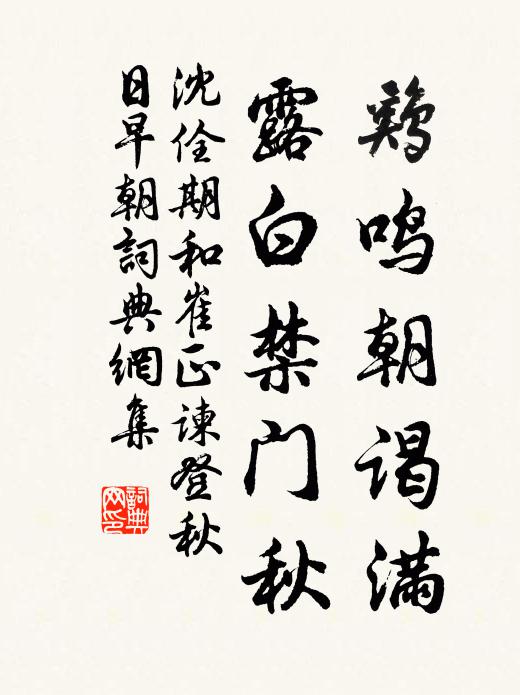 鷄鸣朝谒满
露白禁门秋
沈佺期和崔正諫登秋
日早朝詞典網集
詞典
网印